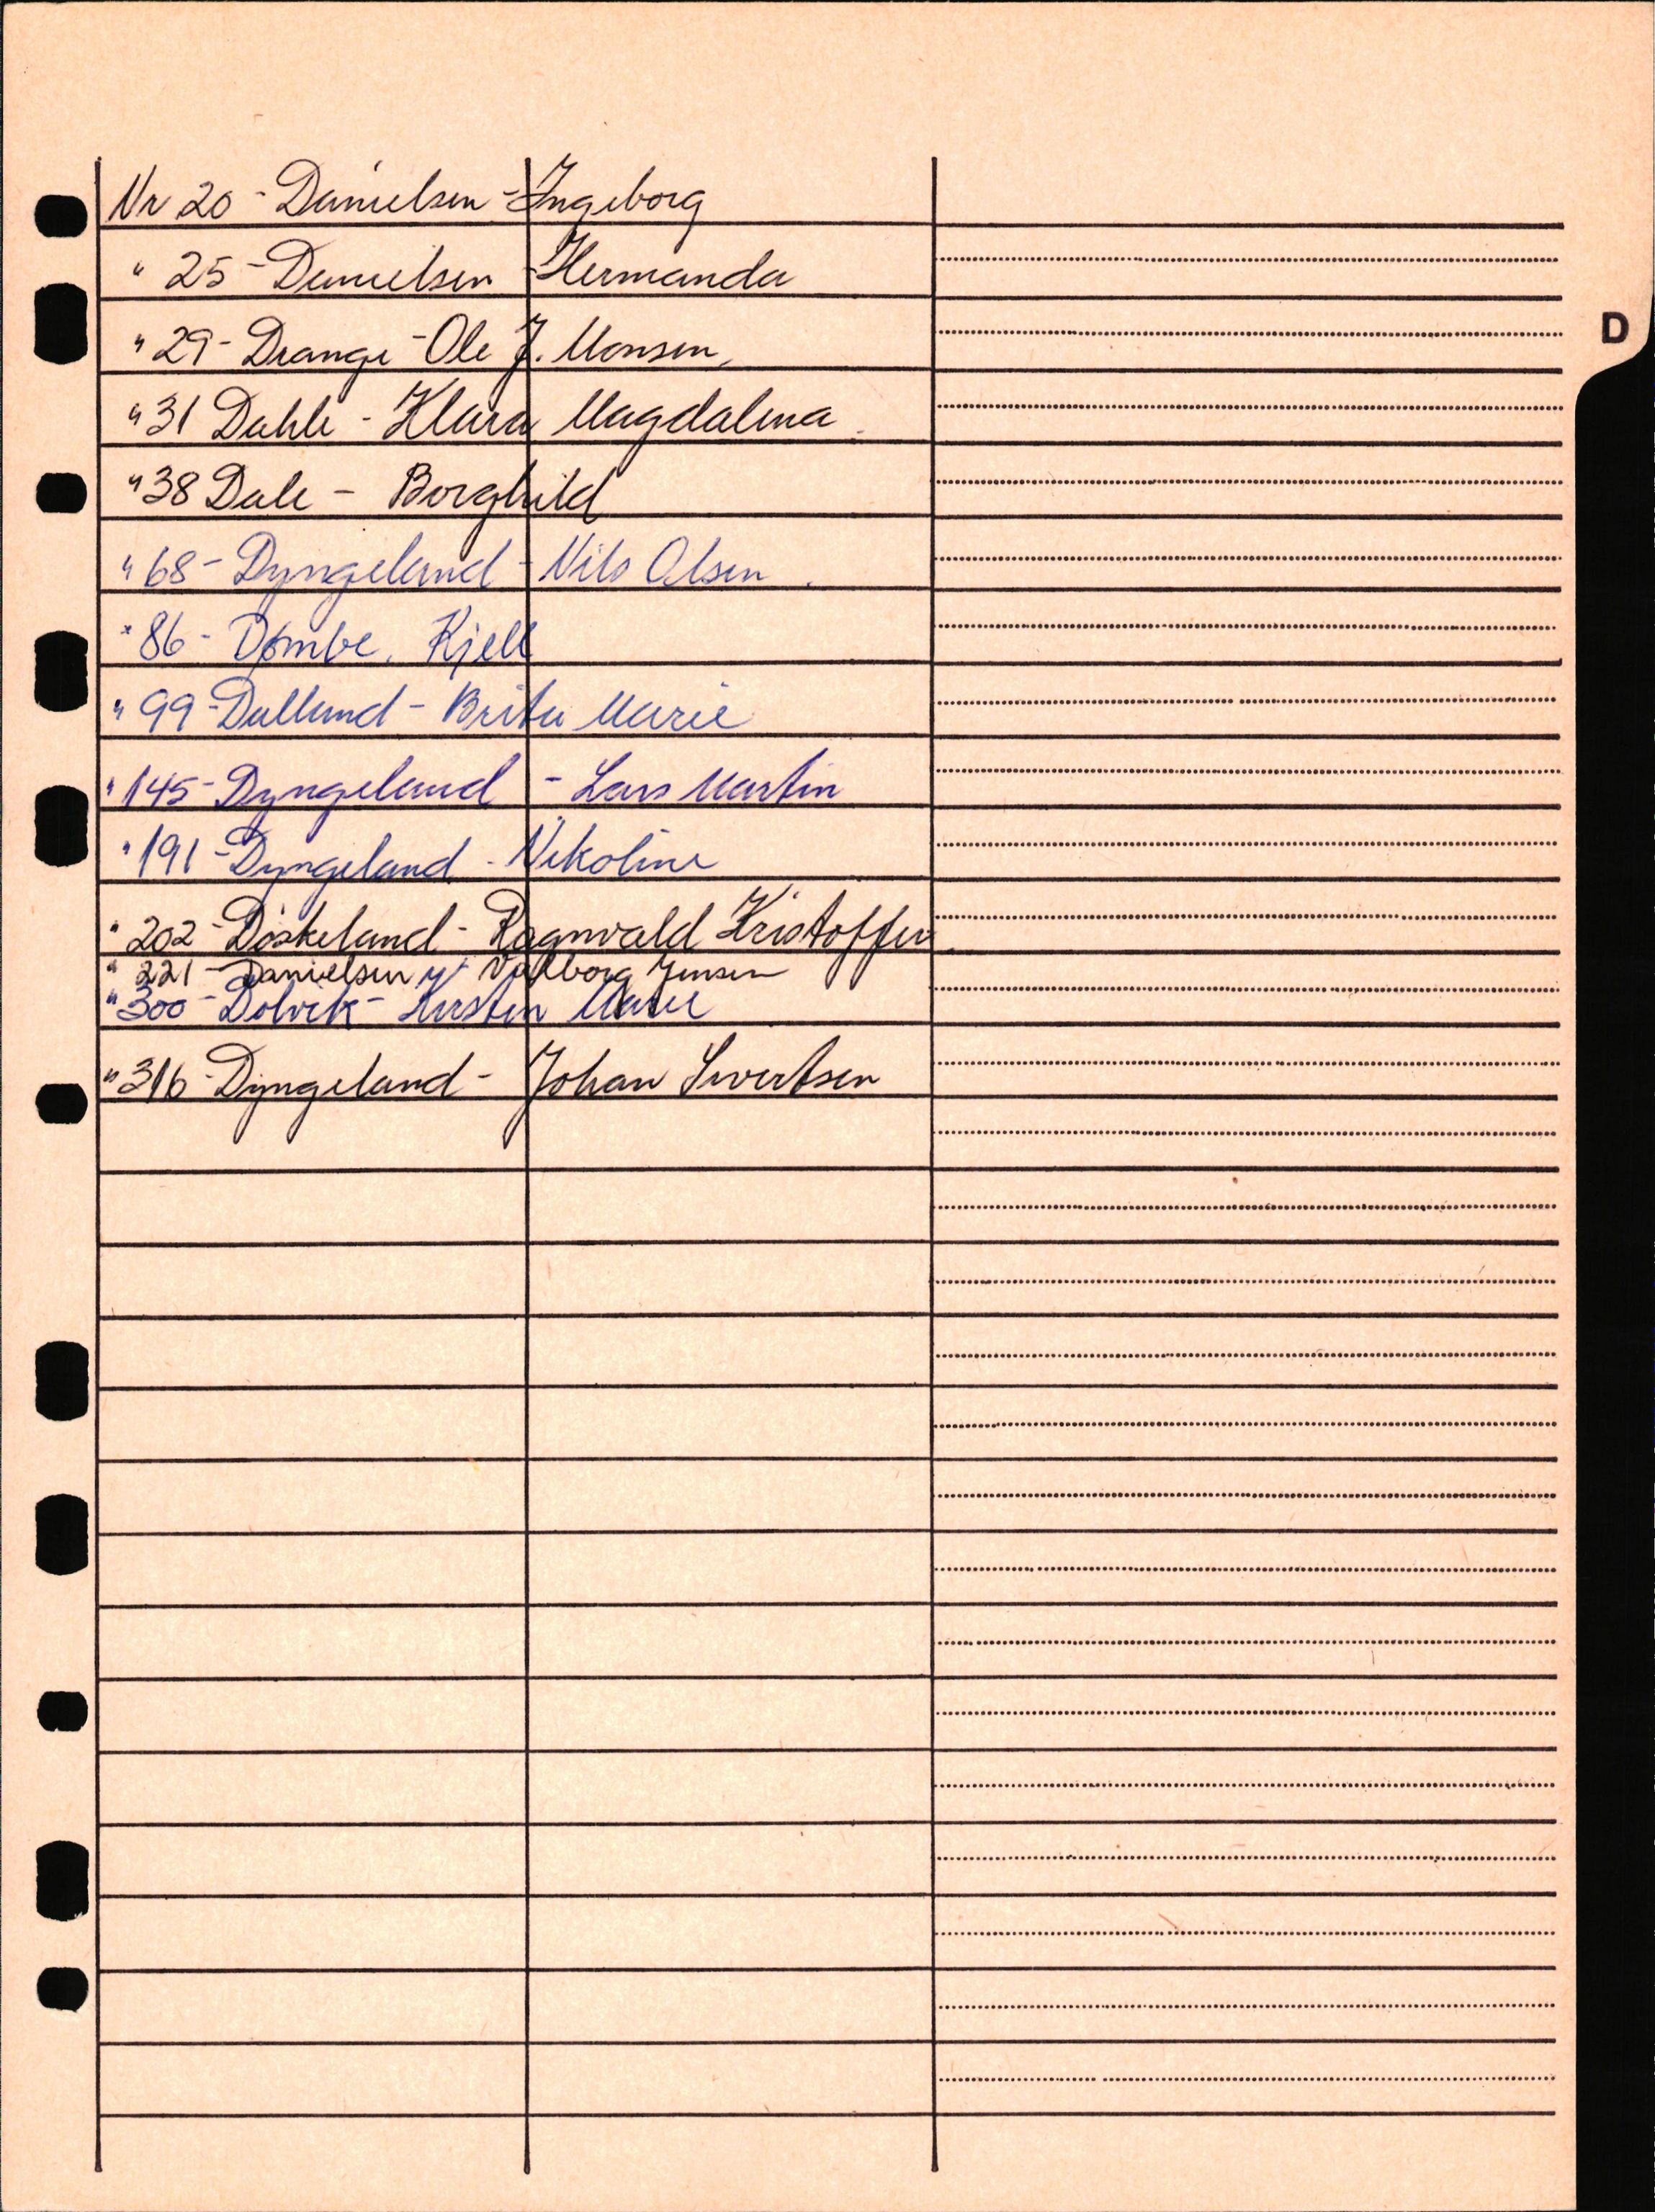 Nr 20 - Danielsen - Ingeborg
" 25 - Danielsen - Hermanda
D
" 29 - Drange - Ole J. Monsen,
" 31 Dahle - Klara Magdalena
" 38 Dale - Borghild
" 68 - Dyngeland - Nils Olsen.
" 86 - Dombe, Kjell
" 99 - Dalland - Brita Marie
" 145 - Dyngeland - Lars Martin
" 191 - Dyngeland - Nikoline
" 202 - Døskeland - Ragnvald Kristoffer
" 221 - Danielsen Valborg Jensen
" 300 - Dolvik - Kirsten Marie
" 316 - Dyngeland - Johan Sivertsen